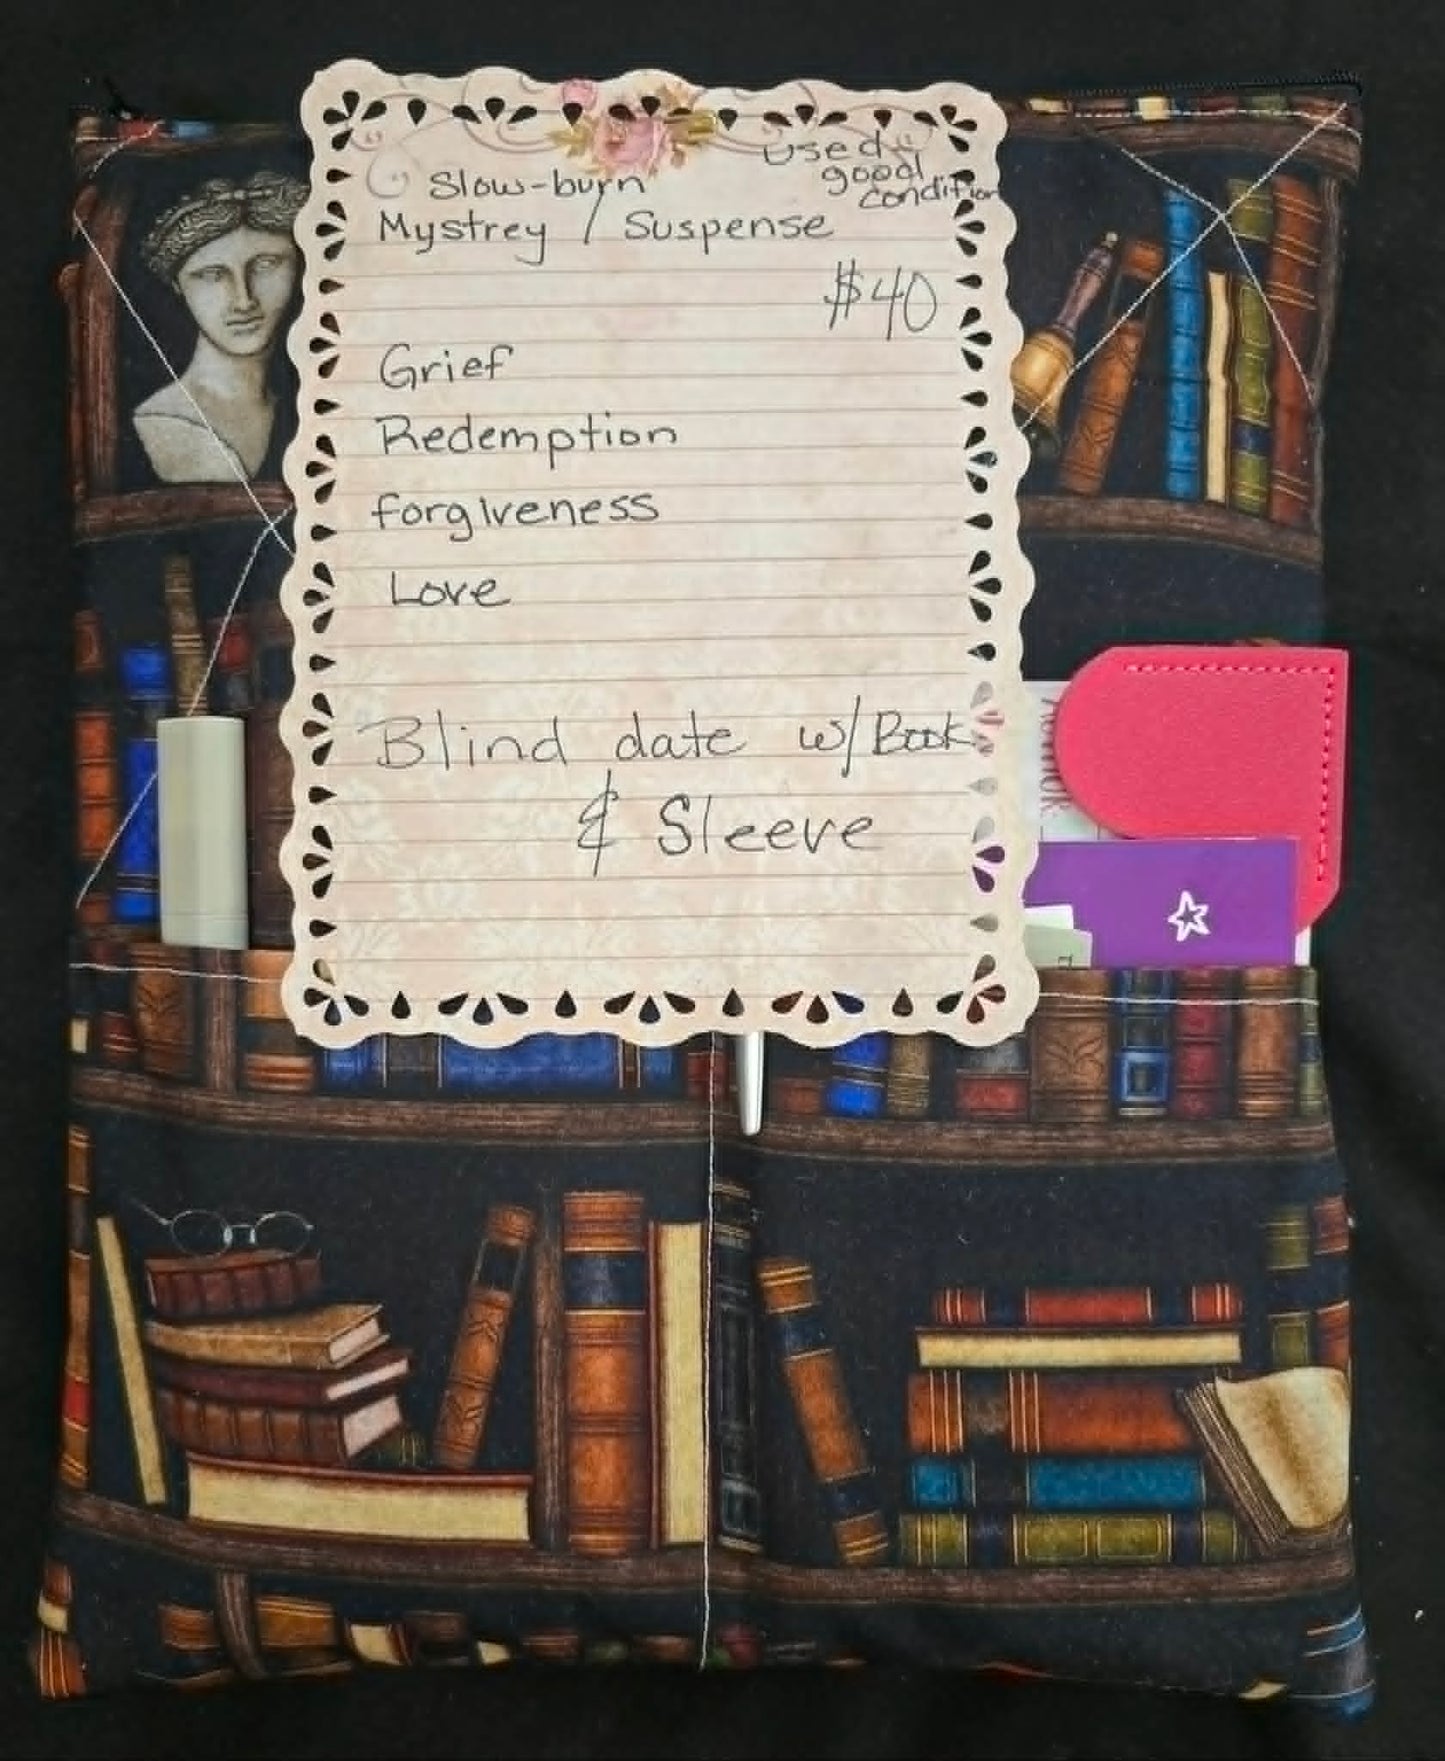 used
good
condition
Slow-burn
Mystrey / Suspense
$40
Grief
Redemption
forgiveness
Love
Blind date w/ Book
& Sleeve